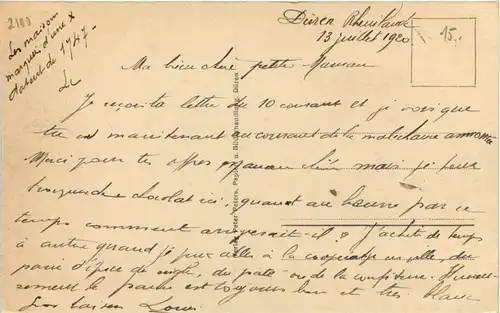 2183
Les maisons
marquées d'une x
datent de 1747 -
Düren Rheinlande
13 juillet 1920
15.
Ma bien chère petite Maman
Je reçois ta lettre du 10 courant et je vois que
tu es maintenant au courant de la
Merci pour tes offres maman chérie mais je peux
chocolat ici, quant au beurre par ce
temps comment arriverait-il ? J'achète de temps
à autre quand je peux aller à la coopérative en ville, du
pain d'épice de du pâté ou de la confiture. Heureu-
sement le pain est toujours bon et très blanc
Bons baisers Louis
Peter Peters, Papier- u. Bilderhandlung, Düren